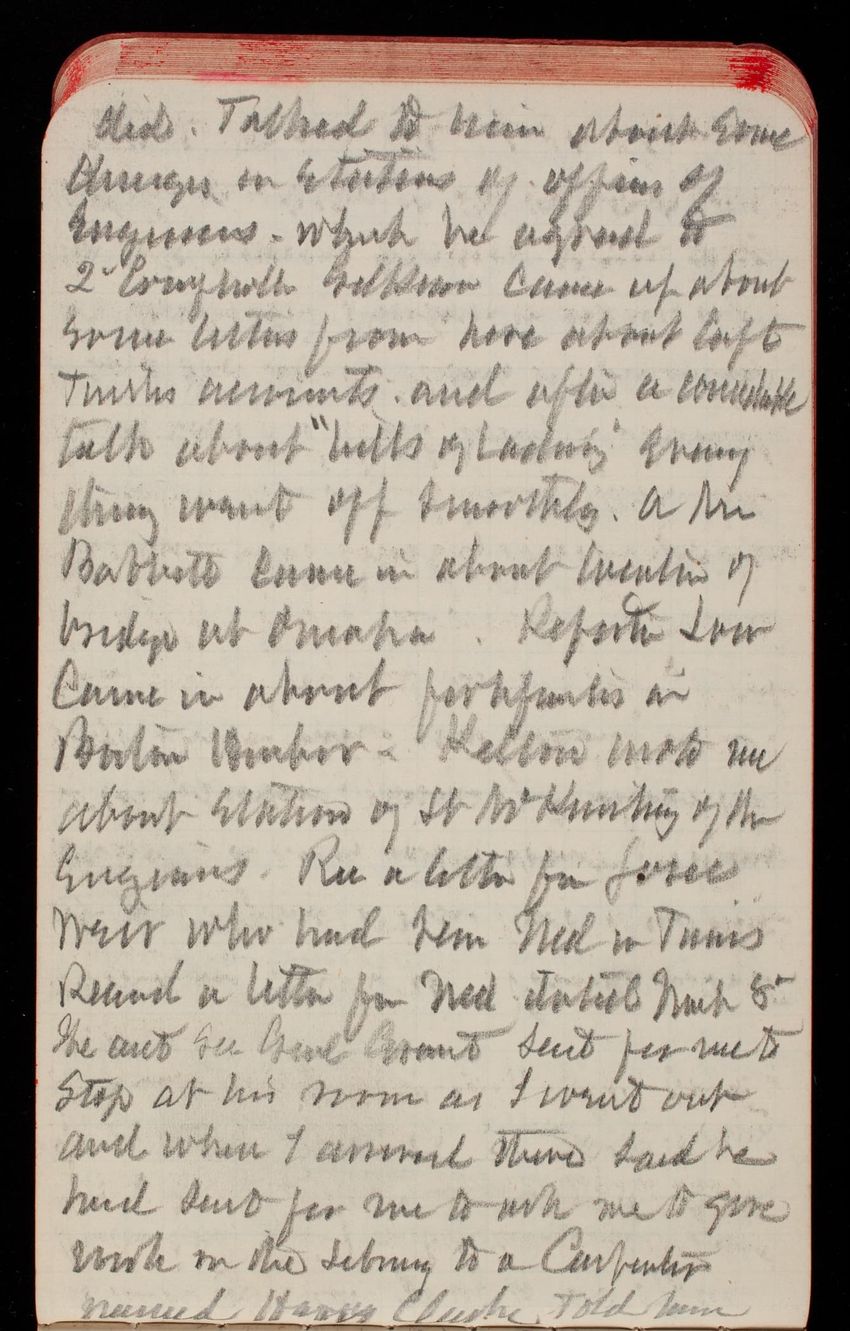 did. Talked to him about some
changes in stations of officers of
Engineers - which he agreed to
2d Comptroller came up about
some letters from here about Capt
accounts. and after a considerable
talk about "bills of lading" every
thing went off smoothly. A Mr
Babbitt came in about location of
bridge at Omaha. Reporter Low
came in about fortifications in
Boston Harbor - Kelton wrote me
about station of Lt of the
Engineers. Rec a letter fm
Weir who had seen Ned in Tunis
Received a letter fm Ned dated March 8"
The act Sec Genl Grant sent for me to
stop at his room as I went out
and when I arrived there said he
had sent for me to ask me to give
work on the library to a Carpenter
named Clarke. Told him